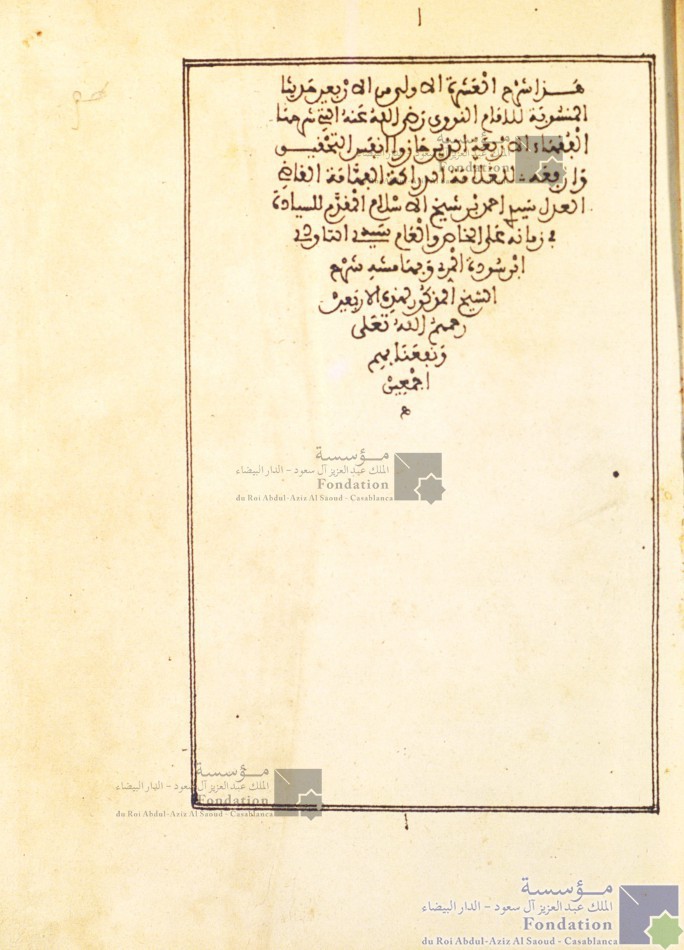 هذا شرح العشرة الاولى من الاربعين حديثا
المنسوبة للامام النووي رضي الله عنه التي شرحنا
الفقهاء الاربعة الذين حازوا انفس التحقيق
وأربعه للعلامة الدراكة الفهامة القاضي
العدل سيدي احمد بن شيخ الاسلام المقدم للسيادة
في زمانه على الخاص والعام سيدي التاودي
ابن سودة المري وبهامشه شرح
الشيخ المذكور لهذه الاربعين
رحمهم الله تعلى
ونفعنا بهم
اجمعين
ه
مؤسسة
الملك عبد العزيز آل سعود - الدار البيضاء
Fondation
du Roi Abdul-Aziz Al Saoud - Casablanca
مؤسسة
الملك عبد العزيز آل سعود - الدار البيضاء
Fondation
du Roi Abdul-Aziz Al Saoud - Casablanca
مؤسسة
الملك عبد العزيز آل سعود - الدار البيضاء
Fondation
du Roi Abdul-Aziz Al Saoud - Casablanca